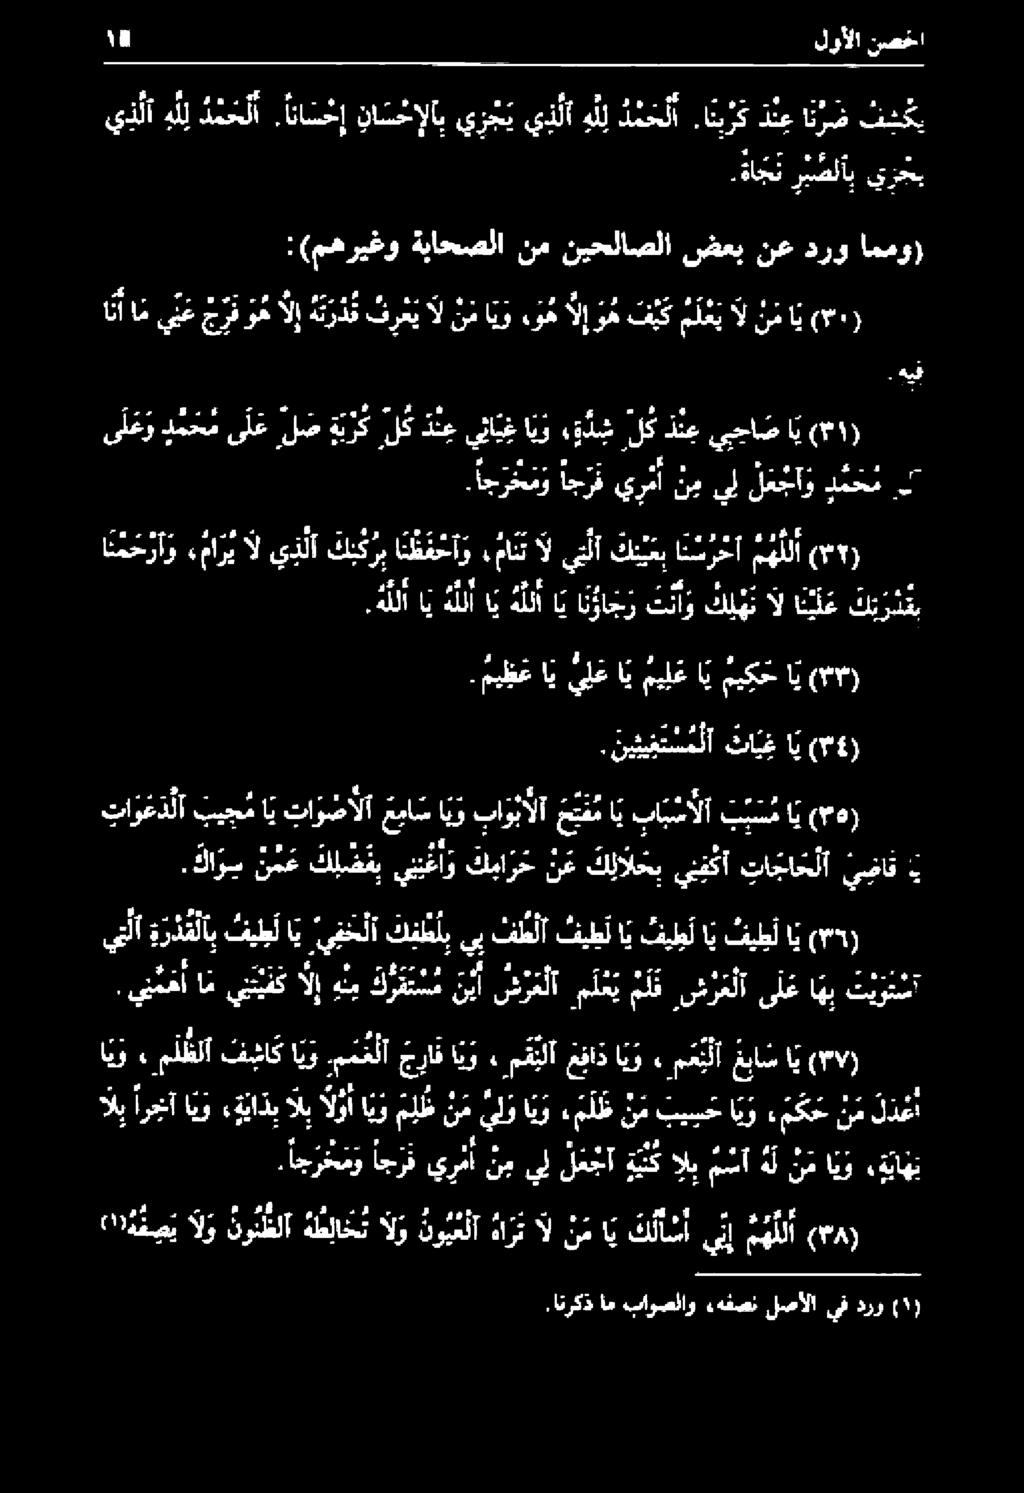 الحصن الأول
يَكْشِفُ ضُرَّنَا عِنْدَ كَرْبِنَا. اَلْحَمْدُ لِلَّهِ اَلَّذِي يَجْزِي بِاَلإِحْسَانِ إِحْسَاناً. اَلْحَمْدُ لِلَّهِ اَلَّذِي
يَجْزِي بِالصَّبْرِ نَجَاةً.
(ومما ورد عن بعض الصالحين من الصحابة وغيرهم):
(٣٠) يَا مَنْ لاَ يَعْلَمُ كَيْفَ هُوَ إِلاَّ هُوَ، وَيَا مَنْ لاَ يَعْرِفُ قُدْرَتَهُ إِلاَّ هُوَ فَرِّجْ عَنِّي مَا أَنَا
فِيهِ.
(٣١) يَا صَاحِبِي عِنْدَ كُلِّ شِدَّةٍ، وَيَا غِيَاثِي عِنْدَ كُلِّ كُرْبَةٍ صَلِّ عَلَى مُحَمَّدٍ وَعَلَى
آلِ مُحَمَّدٍ وَاَجْعَلْ لِي مِنْ أَمْرِي فَرَجاً وَمَخْرَجاً.
(٣٢) اَللَّهُمَّ اَحْرُسْنَا بِعَيْنِكَ اَلَّتِي لاَ تَنَامُ، وَاَحْفَظْنَا بِرُكْنِكَ اَلَّذِي لاَ يُرَامُ، وَاَرْحَمْنَا
بِقُدْرَتِكَ عَلَيْنَا لاَ نَهْلِكُ وَأَنْتَ رَجَاؤُنَا يَا اَللَّهُ يَا اَللَّهُ يَا اَللَّهُ.
(٣٣) يَا حَكِيمُ يَا عَلِيمُ يَا عَلِيُّ يَا عَظِيمُ.
(٣٤) يَا غِيَاثَ اَلْمُسْتَغِيثِينَ.
(٣٥) يَا مُسَبِّبَ اَلأَسْبَابِ يَا مُفَتِّحَ اَلأَبْوَابِ وَيَا سَامِعَ اَلأَصْوَاتِ يَا مُجِيبَ اَلدَّعَوَاتِ
يَا قَاضِيَ اَلْحَاجَاتِ اَكْفِنِي بِحَلاَلِكَ عَنْ حَرَامِكَ وَأَغْنِنِي بِفَضْلِكَ عَمَّنْ سِوَاكَ.
(٣٦) يَا لَطِيفُ يَا لَطِيفُ يَا لَطِيفُ اَلْطُفْ بِي بِلُطْفِكَ اَلْخَفِيِّ يَا لَطِيفُ بِاَلْقُدْرَةِ اَلَّتِي
اَسْتَوَيْتَ بِهَا عَلَى اَلْعَرْشِ فَلَمْ يَعْلَمِ اَلْعَرْشُ أَيْنَ مُسْتَقَرُّكَ مِنْهُ إِلاَّ كَفَيْتَنِي مَا أَهَمَّنِي.
(٣٧) يَا سَابِغَ اَلنِّعَمِ، وَيَا دَافِعَ اَلنِّقَمِ، وَيَا فَارِجَ اَلْغَمَمِ وَيَا كَاشِفَ اَلظُّلَمِ، وَيَا
أَعْدَلَ مَنْ حَكَمَ، وَيَا حَسِيبَ مَنْ ظَلَمَ، وَيَا وَلِيَّ مَنْ ظُلِمَ وَيَا أَوَّلاً بِلاَ بِدَايَةٍ، وَيَا آخِراً بِلاَ
نِهَايَةٍ، وَيَا مَنْ لَهُ اَسْمٌ بِلاَ كُنْيَةٍ اَجْعَلْ لِي مِنْ أَمْرِي فَرَجاً وَمَخْرَجاً.
(٣٨) اَللَّهُمَّ إِنِّي أَسْأَلُكَ يَا مَنْ لاَ تَرَاهُ اَلْعُيُونُ وَلاَ تُخَالِطُهُ اَلظُّنُونُ وَلاَ يَصِفُهُ(١)
(١) ورد في الأصل نصفه، والصواب ما ذكرنا.